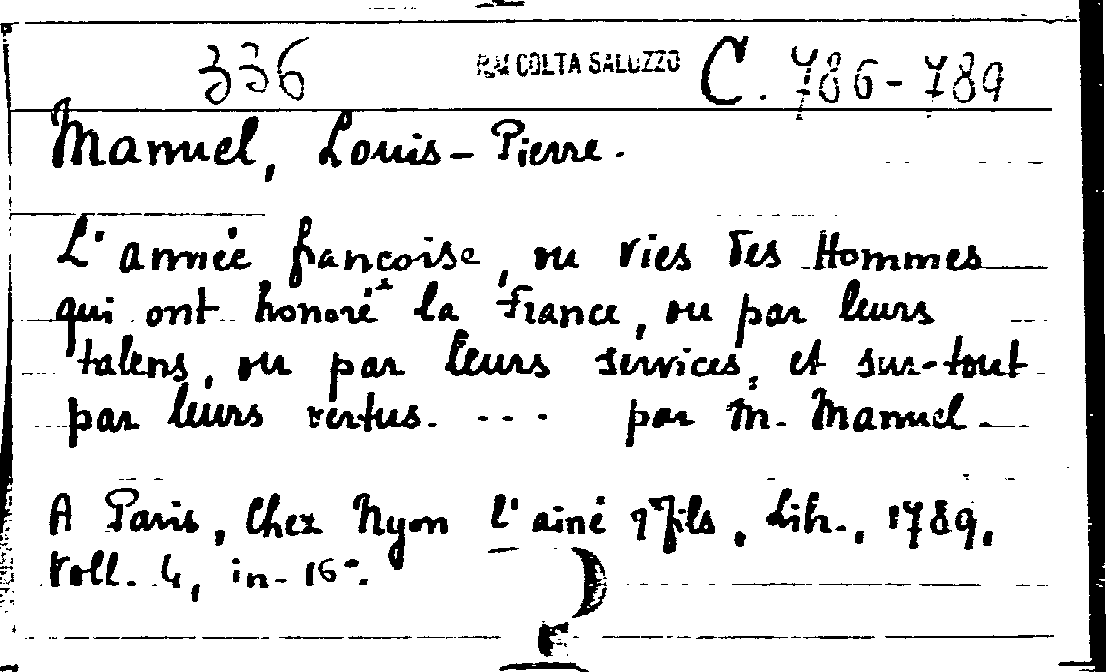 336 RACCOLTA SALUZZO C. 786-789
Manuel, Louis-Pierre.
L'année françoise, ou vies des Hommes
qui ont honoré la France, ou par leurs
talens, ou par leurs services, et sur-tout
par leurs vertus. ... par M. Manuel.
A Paris, Chez Nyon l'ainé & fils, Lib., 1789,
voll. 4, in-16°.